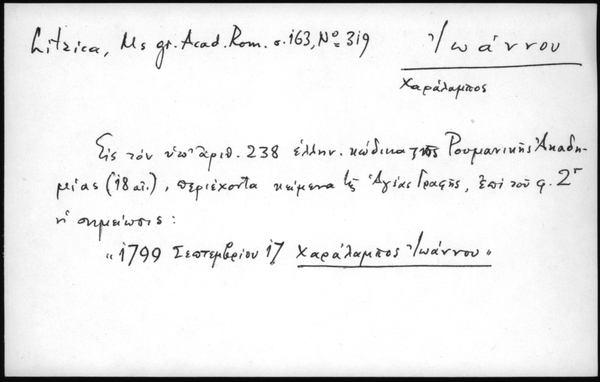 Litzica, Ms gr. Acad. Rom. σ. 163, Nº 319
Ἰωάννου
Χαράλαμπος
Εἰς τὸν ὑπ' ἀριθ. 238 ἑλλην. κώδικα τῆς Ρουμανικῆς Ἀκαδη-
μείας (18 αἰ.), περιέχοντα κείμενα τῆς Ἁγίας Γραφῆς, ἐπὶ τοῦ φ. 2r
ἡ σημείωσις:
"1799 Σεπτεμβρίου 17 Χαράλαμπος Ἰωάννου"